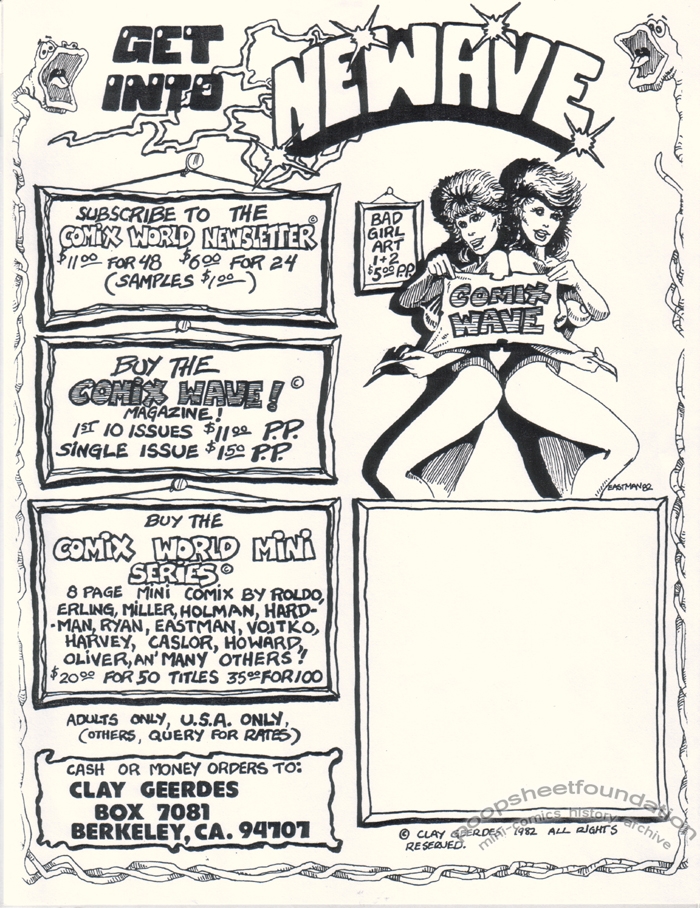 GET
INTO
NEWAVE
SUBSCRIBE TO THE
COMIX WORLD NEWSLETTER ©
$11.00 FOR 48 $6.00 FOR 24
(SAMPLES $1.00)
BAD
GIRL
ART
1+2
$5.00 P.P.
COMIX
WAVE
BUY THE
COMIX WAVE! ©
MAGAZINE!
1ST 10 ISSUES $11.00 P.P.
SINGLE ISSUE $1.50 P.P.
EASTMAN 82
BUY THE
COMIX WORLD MINI
SERIES ©
8 PAGE MINI COMIX BY ROLDO,
ERLING, MILLER, HOLMAN, HARD-
-MAN, RYAN, EASTMAN, VOJTKO,
HARVEY, CASLOR, HOWARD,
OLIVER, AN' MANY OTHERS!
$20.00 FOR 50 TITLES 35.00 FOR 100
ADULTS ONLY, U.S.A. ONLY,
(OTHERS, QUERY FOR RATES)
CASH OR MONEY ORDERS TO:
CLAY GEERDES
BOX 7081
BERKELEY, CA. 94707
© CLAY GEERDES 1982 ALL RIGHTS
RESERVED.
poopsheetfoundation
mini-comics history archive